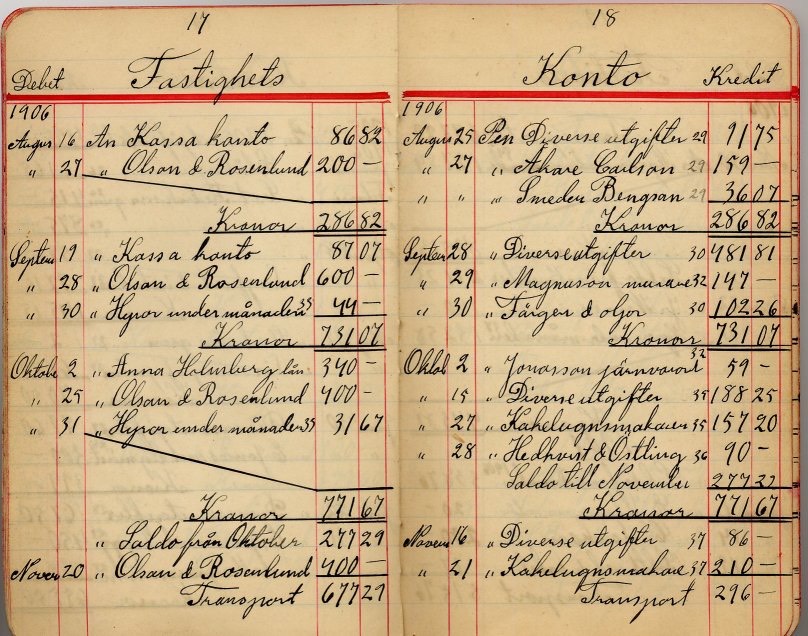 17
Debet Fastighets
1906
Augus 16 An Kassa konto 86 82
" 27 " Olson & Rosenlund 200 —
Kronor 286 82
Septem 19 " Kassa konto 87 07
" 28 " Olson & Rosenlund 600 —
" 30 " Hyror under månaden 35 44 —
Kronor 731 07
Oktobe 2 " Anna Holmberg lån 340 —
" 25 " Olson & Rosenlund 400 —
" 31 " Hyror under månaden 35 31 67
Kronor 771 67
" Saldo från Oktober 277 29
Novem 20 " Olson & Rosenlund 400 —
Transport 677 29
18
Konto Kredit
1906
Augus 25 Pen Diverse utgifter 29 91 75
" 27 " Åkare Carlson 29 159 —
" " " Smeden Bengson 29 36 07
Kronor 286 82
Septem 28 " Diverse utgifter 30 481 81
" 29 " Magnuson murare 32 147 —
" 30 " Färger & oljor 30 102 26
Kronor 731 07
Oktob 2 " Jonasson järnvaror 32 59 —
" 15 " Diverse utgifter 35 188 25
" 27 " Kakelugnsmakaren 35 157 20
" 28 " Hedkvist & Östling 36 90 —
Saldo till November 277 22
Kronor 771 67
Novem 16 " Diverse utgifter 37 86 —
" 21 " Kakelugnsmakare 37 210 —
Transport 296 —